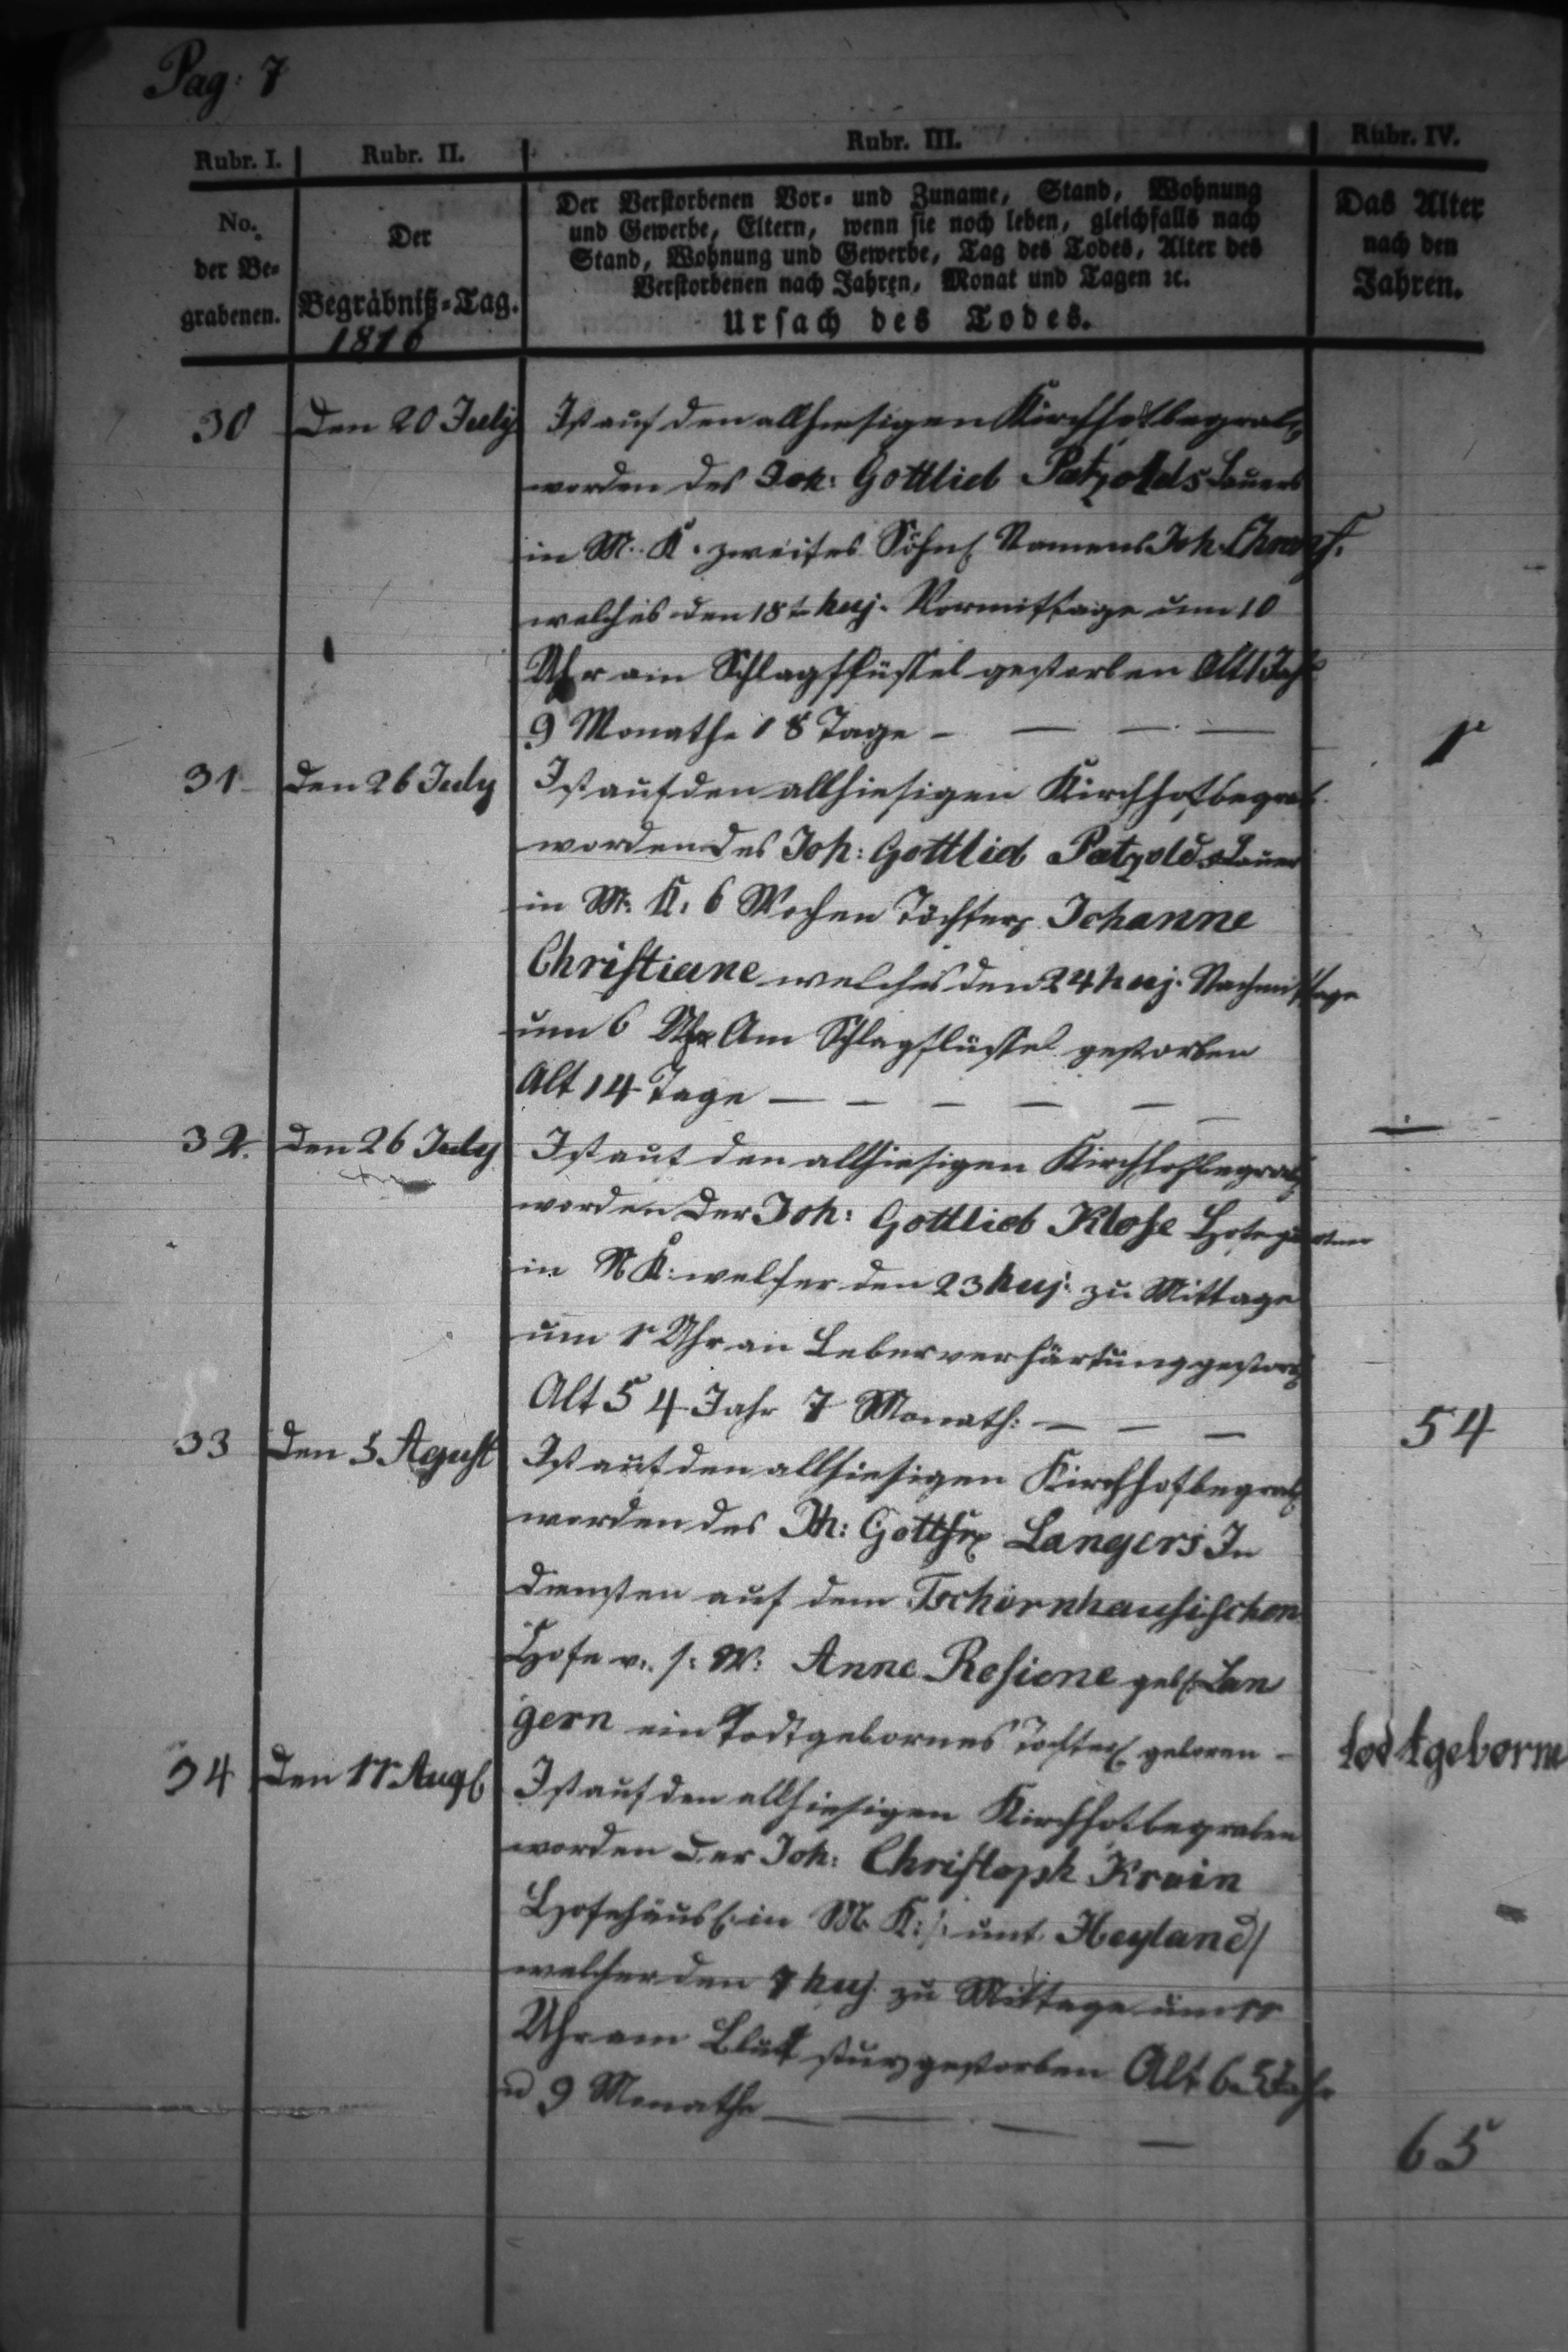 Pag: 7
Rubr. I. Rubr. II. Rubr. III. Rubr. IV.
No. der Be- grabenen.
Der Begräbniß-Tag. 1816
Der Verstorbenen Vor- und Zuname, Stand, Wohnung
und Gewerbe, Eltern, wenn sie noch leben, gleichfalls nach
Stand, Wohnung und Gewerbe, Tag des Todes, Alter des
Verstorbenen nach Jahren, Monat und Tagen ꝛc.
Ursach des Todes.
Das Alter
nach den
Jahren.
30 Den 20 July Ist auf den allhiesigen Kirchhof begrab
worden des Joh: Gottlieb Patzolds Bauers
in M. K. zweites Söhnl Namens Joh.
welches den 18t huj. Vormittage um 10
Uhr am Schlagflüssel gestorben Alt 1 Jahr
9 Monathe 18 Tage - — — — 1
31 den 26 July Ist auf den allhiesigen Kirchhof begrab
worden des Joh: Gottlieb Patzolds Bauer
in M. K. 6 Wochen Töchterl Johanne
Christiane welches den 24 huj. Nachmittage
um 6 Uhr Am Schlagflüssel gestorben
Alt 14 Tage — — — — — —
32. den 26 July Ist auf den allhiesigen Kirchhof begrab
worden Der Joh: Gottlieb Klose Hofegärtner
in N K: welcher den 23 huj. zu Mittage
um 1 Uhr an Leberverhärtung gestorb
Alt 54 Jahr 7 Monath: — — — 54
33 Den 5 Agust Ist auf den allhiesigen Kirchhof begrab
worden des Joh: Gottfr Langers In
diensten auf dem Tschirnhausischen
Hofe v. s: W: Anne Rosiene geb. Lan
gern ein Todtgebornes Töchterl geboren - todtgeborne
34 Den 11 Aug Ist auf den allhiesigen Kirchhof begraben
worden Der Joh: Christoph Krain
Hofehäusl. in M. K: /: Heyland/
welcher den 7 huj. zu Mittage um 11
Uhr am Blutsturz gestorben Alt 65 Jahr
u 9 Monathe — — — — 65